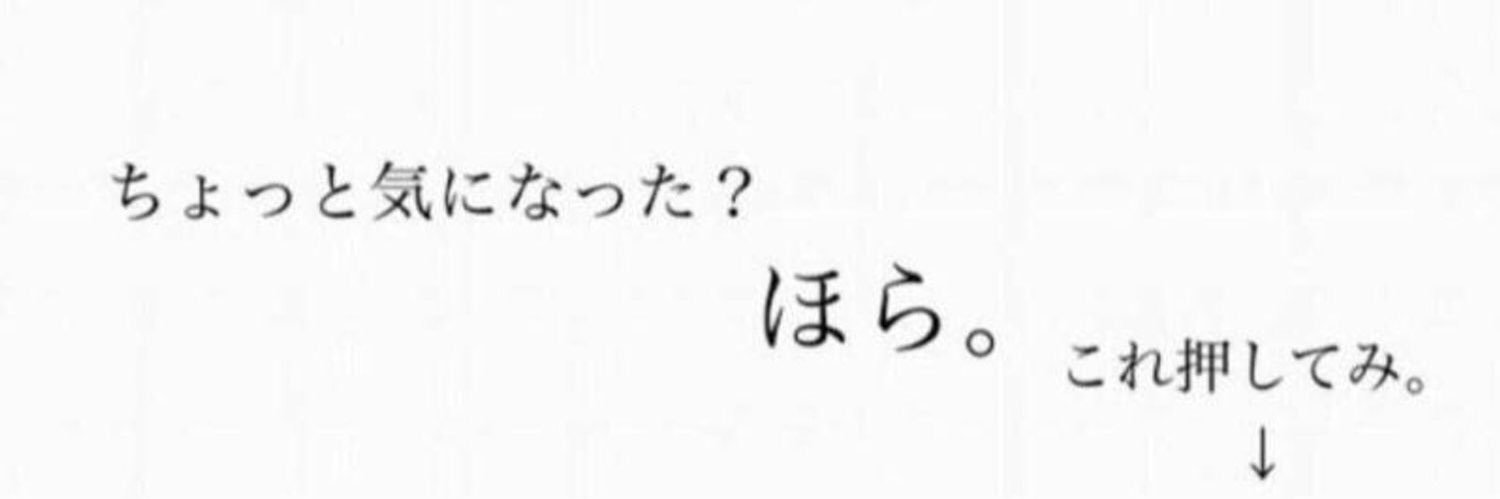 ちょっと気になった？
ほら。
これ押してみ。
↓